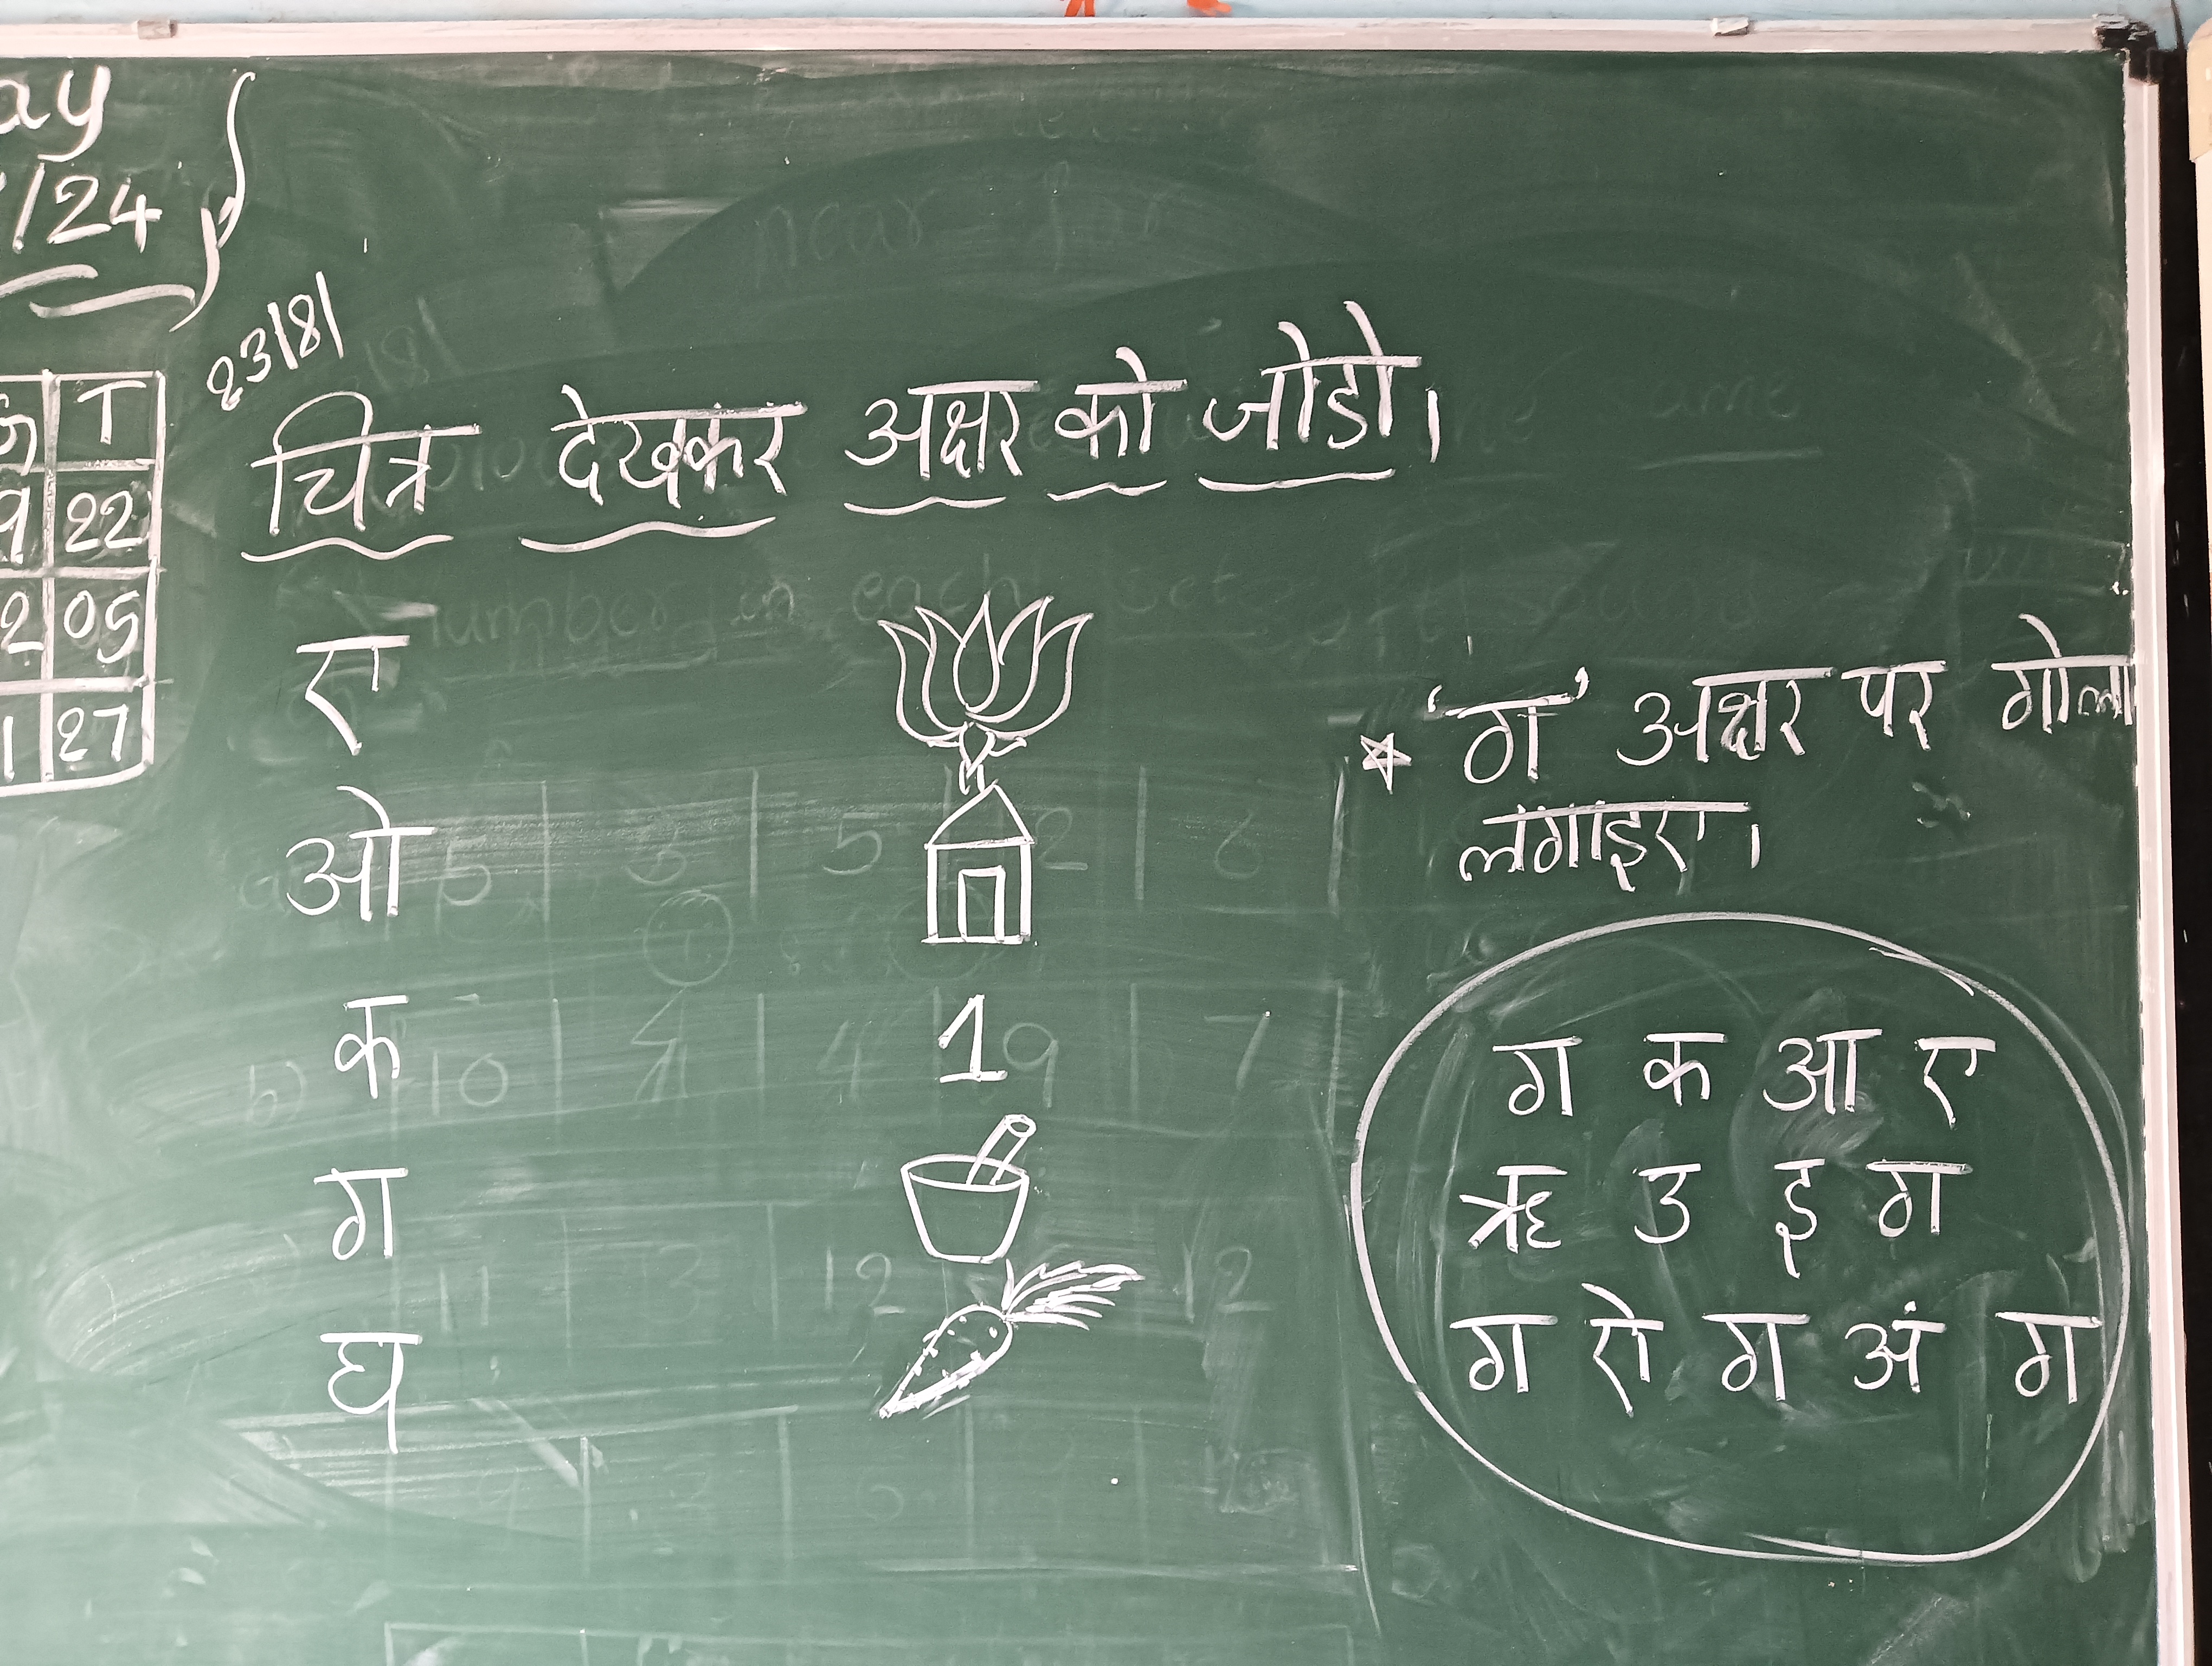 ay
/24
T
9 22
2 05
1 27
23/8/
चित्र देखकर अक्षर को जोडो।
ए
ओ
क
1
ग
घ
* 'ग' अक्षर पर गोला
लगाइए।
ग क आ ए
ऋ उ इ ग
ग रो ग अं ग